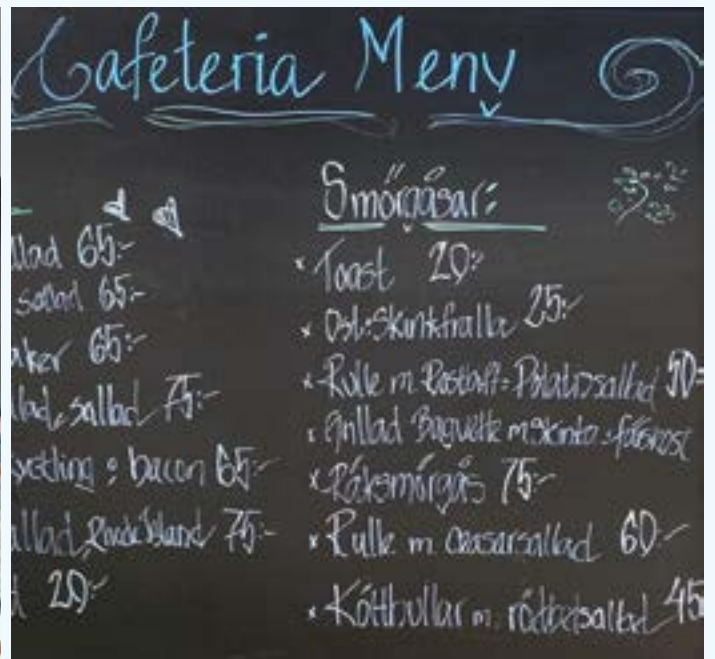 Cafeteria Meny
llad 65:-
sallad 65:-
aker 65:-
llad, sallad 75:-
bacon 65:-
allad, Rhode Island 75:-
20:-
Smörgåsar:
* Toast 20:-
* Ost & Skinkfralla 25:-
* Rulle m. Rostbiff & Potatissallad 50:-
* Grillad Baguette m Skinka & färskost
* Räksmörgås 75:-
* Rulle m. Ceasarsallad 60:-
* Köttbullar m. rödbetsallad 45